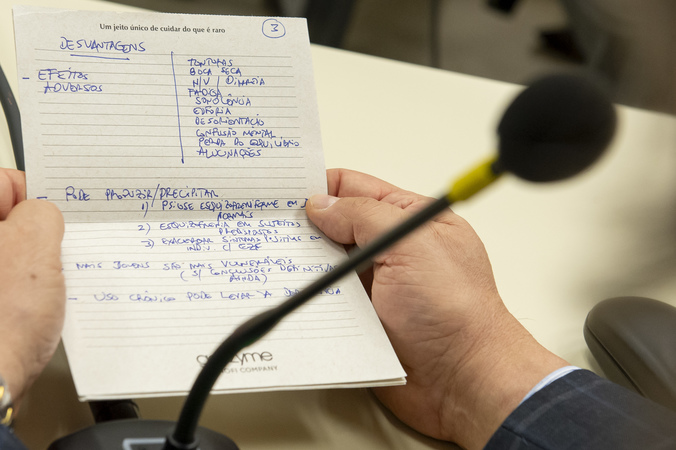 Um jeito único de cuidar do que é raro
3
DESVANTAGENS
- EFEITOS
ADVERSOS
TONTURAS
BOCA SECA
N/V / DIARREIA
FADIGA
SONOLÊNCIA
EUFORIA
DESORIENTAÇÃO
CONFUSÃO MENTAL
PERDA DO EQUILÍBRIO
ALUCINAÇÕES
- PODE PRODUZIR/PRECIPITAR
1) PSICOSE ESQUIZOFRENIFORME EM
2) ESQUIZOFRENIA EM SUJEITOS
PREDISPOSTOS
3) EXACERBAR SINTOMAS POSITIVOS EM
INDIV. C/
- MAIS JOVENS SÃO MAIS VULNERÁVEIS
(S/ CONCLUSÕES DEFINITIVAS
AINDA)
- USO CRÔNICO PODE LEVAR A
COMPANY